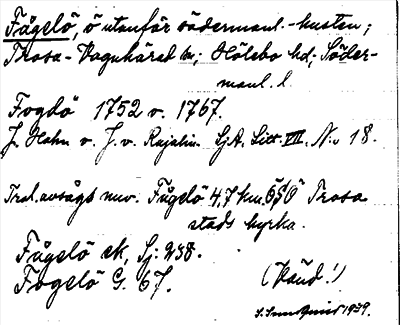 Fågelö, ö utanför södermanl.-kusten;
Trosa-Vagnhärad sn; Hölebo hd; Söder-
manl. l.
Fogdö 1752 v. 1767.
J. Hahn v. J. v. Rajalin SjA. Litt. VII. N:o 18.
Trol. avsågs nuv. Fågelö 4,7 km. ÖSÖ Trosa
stads kyrka.
Fågelö ek, Sj: 238.
Fogelö G. 67.
(Känd!)
1939.